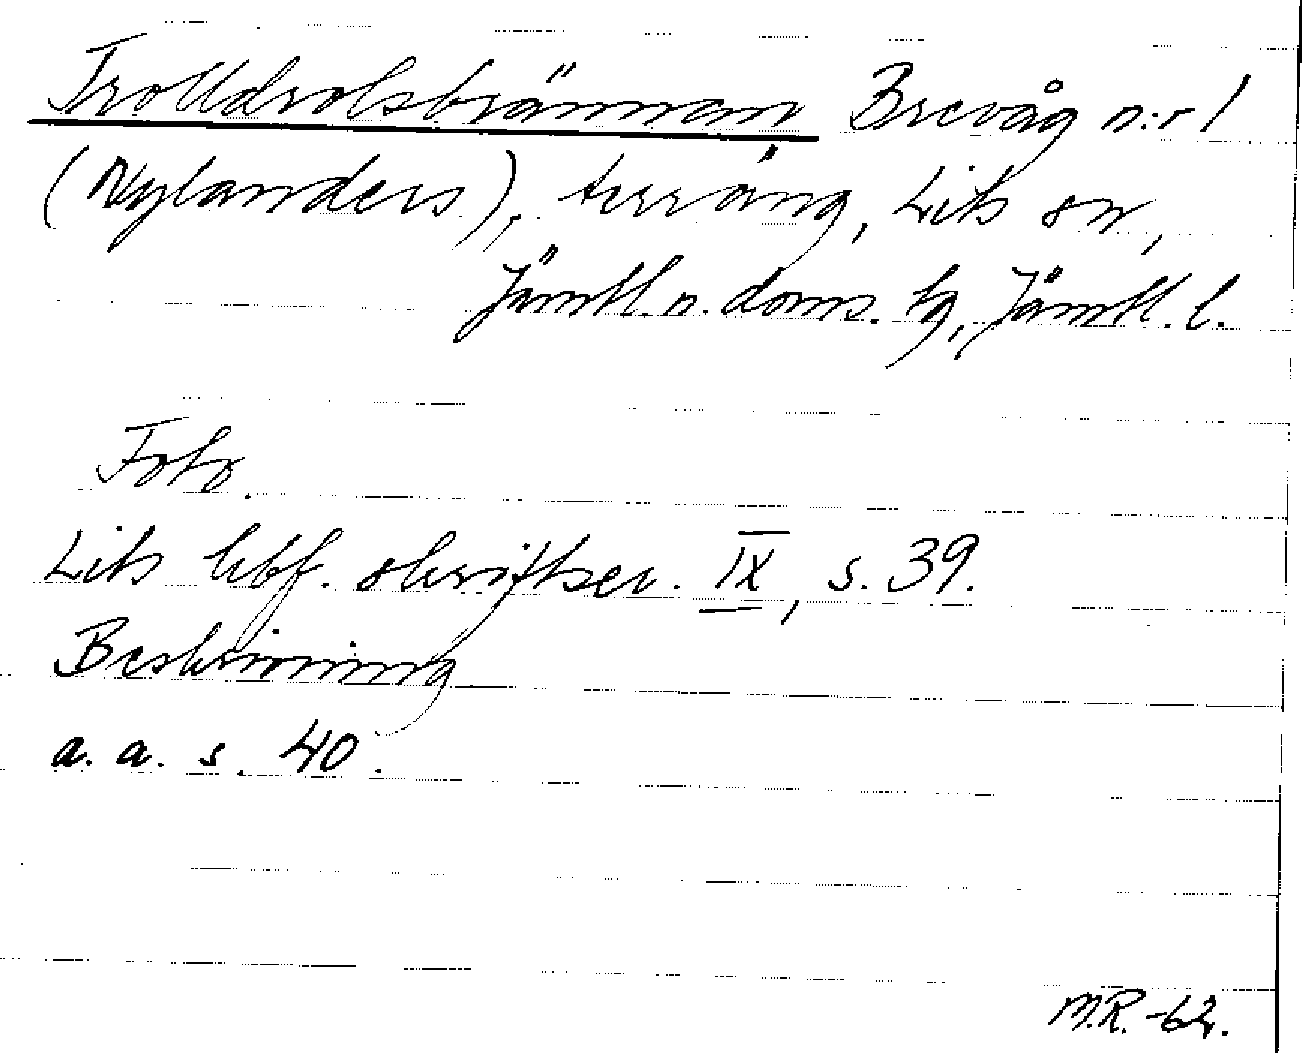 Trolldrolsbrännan Brevåg n:r 1
(Nylanders), terräng, Lits sn,
Jämtl. n. doms. tg, Jämtl. l.
Foto.
Lits hbf. skriftser. IX, s. 39.
Beskrivning
a. a. s. 40.
M.R. -62.